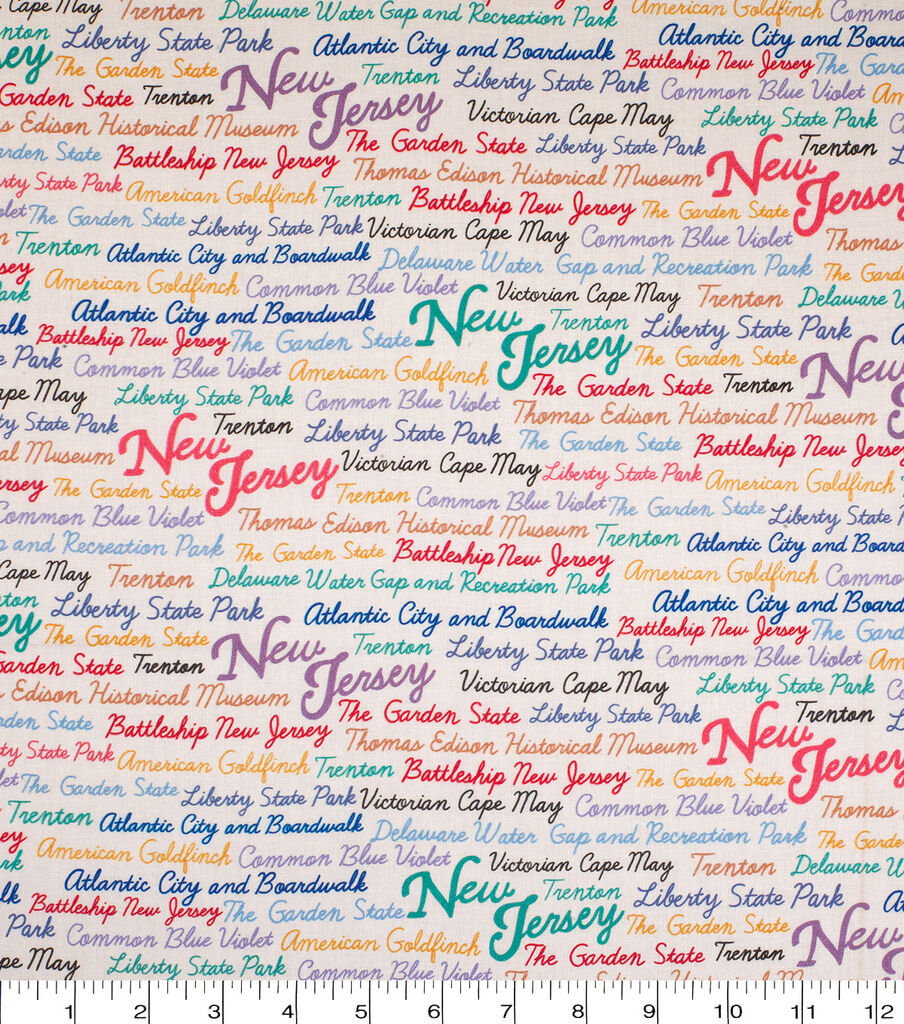 Cape May Trenton Delaware Water Gap and Recreation Park American Goldfinch Common
Liberty State Park Atlantic City and Boardwalk Atlantic City and Boardw
The Garden State New Trenton Liberty State Park Battleship New Jersey The Gard
Garden State Trenton Jersey Victorian Cape May Common Blue Violet Am
Edison Historical Museum The Garden State Liberty State Park Liberty State Park
Garden State Battleship New Jersey Thomas Edison Historical Museum New Trenton
State Park American Goldfinch Trenton Battleship New Jersey The Garden State Jersey
The Garden State Liberty State Park Victorian Cape May Common Blue Violet Thomas
Trenton Atlantic City and Boardwalk Delaware Water Gap and Recreation Park The Gard
American Goldfinch Common Blue Violet Victorian Cape May Trenton Delaware W
Park Atlantic City and Boardwalk New Trenton Liberty State Park
Battleship New Jersey The Garden State Jersey The Garden State New
Park Common Blue Violet American Goldfinch The Garden State Trenton
Cape May Liberty State Park Common Blue Violet Thomas Edison Historical Museum
State Park New Trenton Liberty State Park The Garden State Battleship New Jersey
Museum Jersey Victorian Cape May Liberty State Park American Goldfinch
Jersey The Garden State Trenton Common Blue Violet The Garden State Liberty State P
Common Blue Violet Thomas Edison Historical Museum Trenton Atlantic City and Board
and Recreation Park The Garden State Battleship New Jersey American Goldfinch Common
Cape May Trenton Delaware Water Gap and Recreation Park
Liberty State Park Atlantic City and Boardwalk Atlantic City and Board
The Garden State New Trenton Liberty State Park Battleship New Jersey The Gard
Garden State Trenton Jersey Victorian Cape May Common Blue Violet Am
Edison Historical Museum The Garden State Liberty State Park Liberty State Park
Garden State Battleship New Jersey Thomas Edison Historical Museum New Trenton
Liberty State Park American Goldfinch Trenton Battleship New Jersey The Garden State Jersey
The Garden State Liberty State Park Victorian Cape May Common Blue Violet Thomas
Trenton Atlantic City and Boardwalk Delaware Water Gap and Recreation Park The Gard
American Goldfinch Common Blue Violet Victorian Cape May Trenton Delaware W
Atlantic City and Boardwalk New Trenton Liberty State Park
Battleship New Jersey The Garden State Jersey The Garden State New
Park Common Blue Violet American Goldfinch The Garden State Trenton
Cape May Liberty State Park Common Blue Violet Thomas Edison Historical Museum
1 2 3 4 5 6 7 8 9 10 11 12